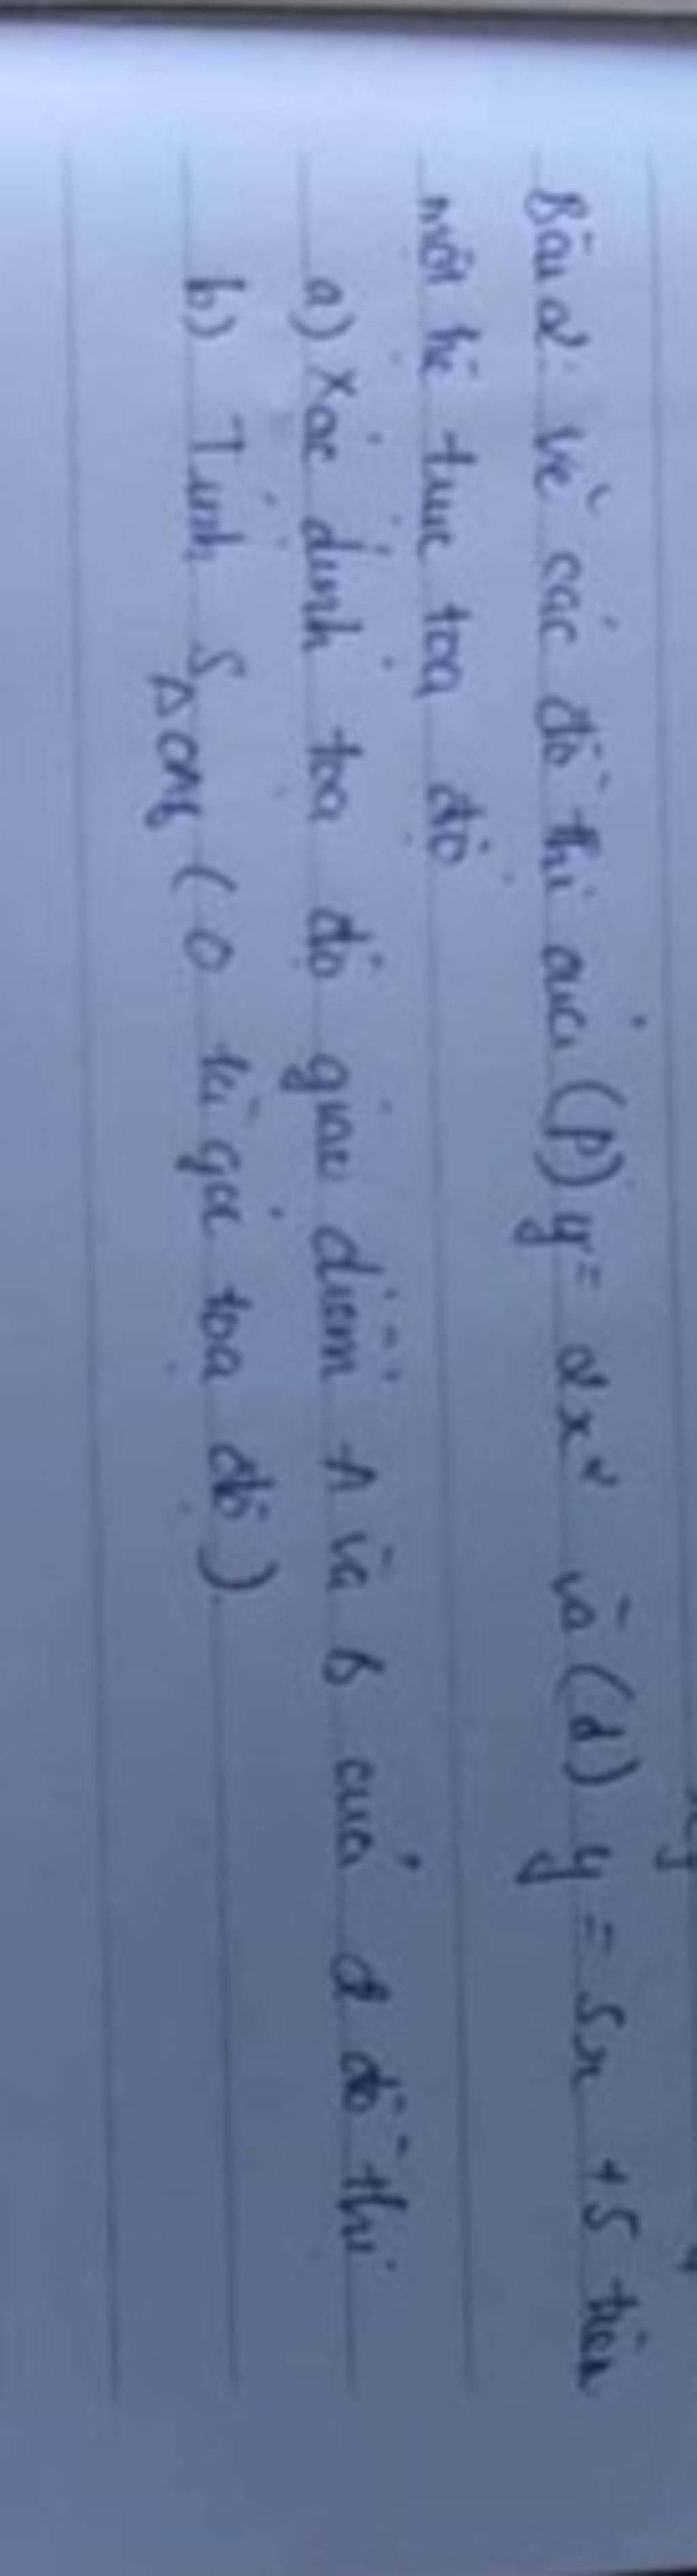 Bài 2: Vẽ các đồ thị của (P) y = 2x² và (d) y = 5x + 5 trên
một hệ trục toạ độ
a) Xác định toạ độ giao điểm A và B của 2 đồ thị
b) Tính S△OAB (O là gốc toạ độ)